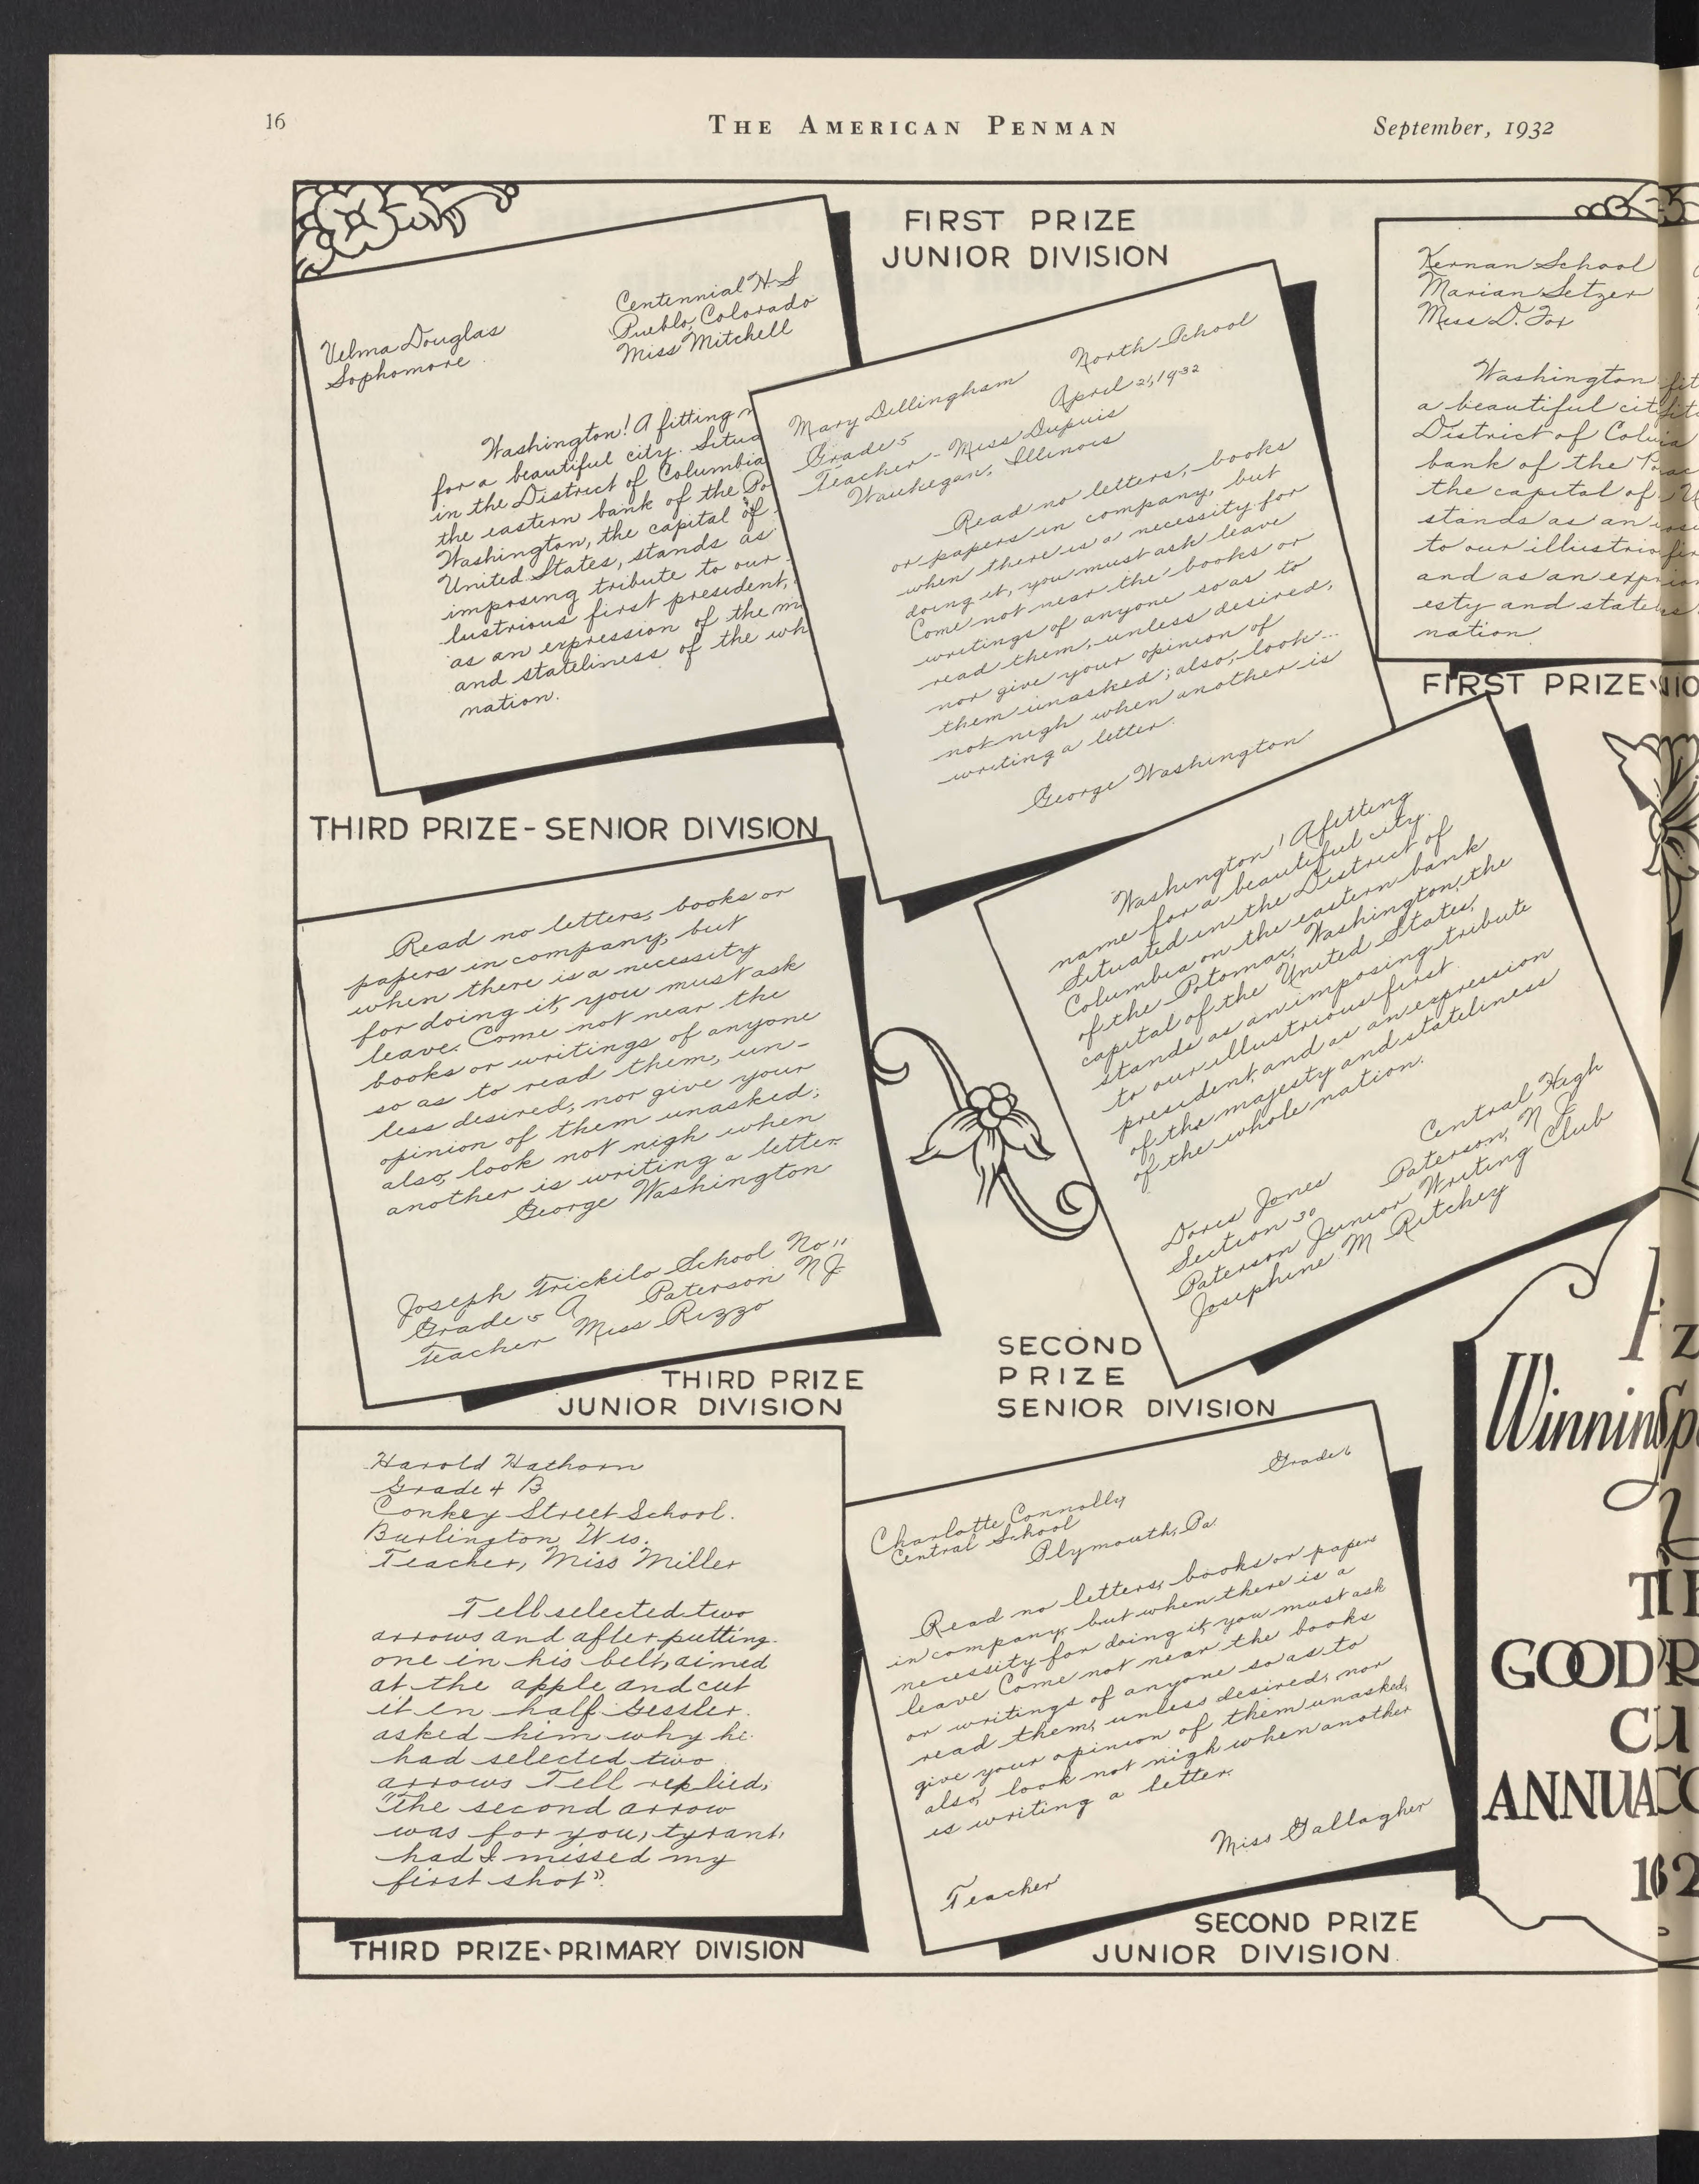 16
THE AMERICAN PENMAN
September, 1932
Velma Douglas
Sophomore
Centennial H-S
Pueblo, Colorado
Miss Mitchell
Washington! A fitting
for a beautiful city. Situa
in the District of Columbia
the eastern bank of the Po
Washington, the capital of
United States, stands as
imposing tribute to our
lustrious first president,
as an expression of the m
and stateliness of the wh
nation.
THIRD PRIZE - SENIOR DIVISION
FIRST PRIZE
JUNIOR DIVISION
North School
Mary Dillingham April 21, 1932
Grade 5
Teacher - Miss Dupuis
Waukegan, Illinois
Read no letters, books
or papers in company, but
when there is a necessity for
doing it, you must ask leave
Come not near the books or
writings of anyone so as to
read them, unless desired,
nor give your opinion of
them unasked; also, look
not nigh when another is
writing a letter.
George Washington
Kernan School
Marian Setzer
Miss D. Fox
Washington
a beautiful cit
District of Colu
bank of the P
the capital of
stands as an
to our illustrio
and as an exp
esty and state
nation.
FIRST PRIZE
Read no letters, books or
papers in company, but
when there is a necessity
for doing it, you must ask
leave. Come not near the
books or writings of anyone
so as to read them, un-
less desired, nor give your
opinion of them unasked;
also, look not nigh when
another is writing a letter.
George Washington
Joseph Trickilo School No 11
Grade 5 A Paterson N J
Teacher Miss Rizzo
THIRD PRIZE
JUNIOR DIVISION
Washington! A fitting
name for a beautiful city.
Situated in the District of
Columbia on the eastern bank
of the Potomac, Washington, the
capital of the United States,
stands as an imposing tribute
to our illustrious first
president, and as an expression
of the majesty and stateliness
of the whole nation.
Doris Jones Central High
Section 30 Paterson, N J
Paterson Junior Writing Club
Josephine M Ritchey
SECOND
PRIZE
SENIOR DIVISION
Harold Hathorn
Grade 4 B
Conkey Street School.
Burlington, Wis.
Teacher, Miss Miller
Tell selected two
arrows and after putting
one in his belt, aimed
at the apple and cut
it in half. Gessler
asked him why he
had selected two
arrows Tell replied,
"The second arrow
was for you, tyrant,
had I missed my
first shot".
THIRD PRIZE - PRIMARY DIVISION
Grade 6
Charlotte Connolly
Central School
Plymouth, Pa.
Read no letters, books or papers
in company, but when there is a
necessity for doing it, you must ask
leave Come not near the books
or writings of anyone so as to
read them, unless desired, nor
give your opinion of them unasked,
also, look not nigh when another
is writing a letter.
Miss Gallagher
Teacher
SECOND PRIZE
JUNIOR DIVISION
Winnin
GOOD
ANNUA